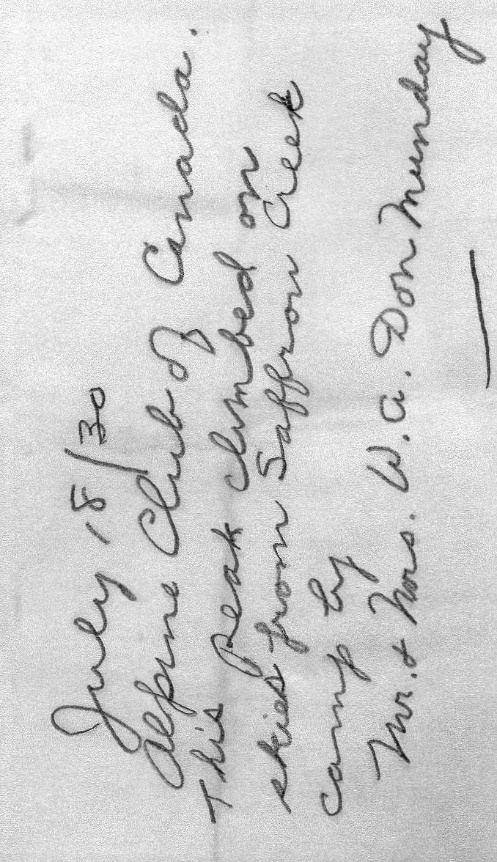 July 18/30
Alpine Club of Canada.
This peak climbed on
skies from Saffron Creek
camp by
Mr. & Mrs. W. A. Don Munday